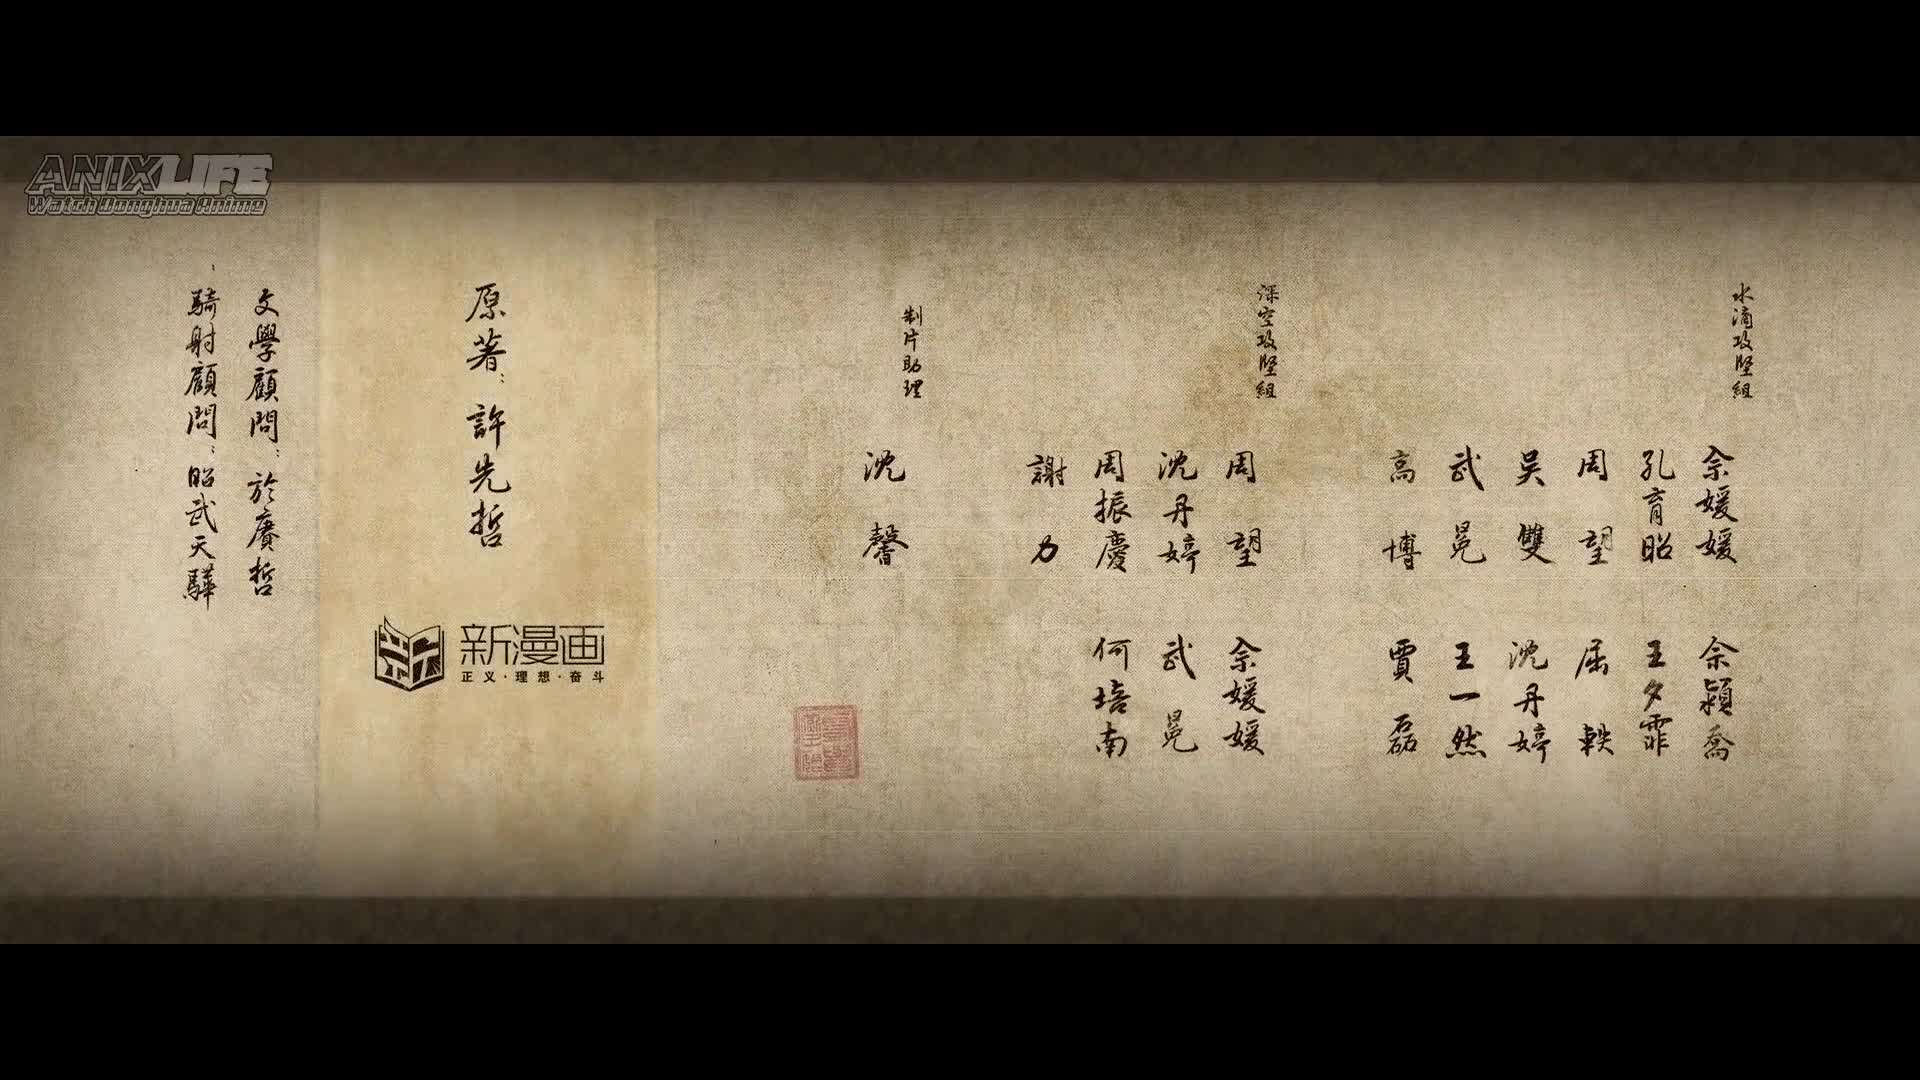 ANIXLIFE
Watch Donghua Anime
水滴攻堅組
佘媛媛 佘潁喬
孔育昭 王夕霏
周望 屈軼
吳雙 沈丹婷
武冕 王一然
高博 賈磊
深空攻堅組
周望 佘媛媛
沈丹婷 武冕
周振慶 何培南
謝力
制片助理
沈馨
原著：許先哲
新漫画
正义·理想·奋斗
文學顧問：於賡哲
騎射顧問：昭武天驊